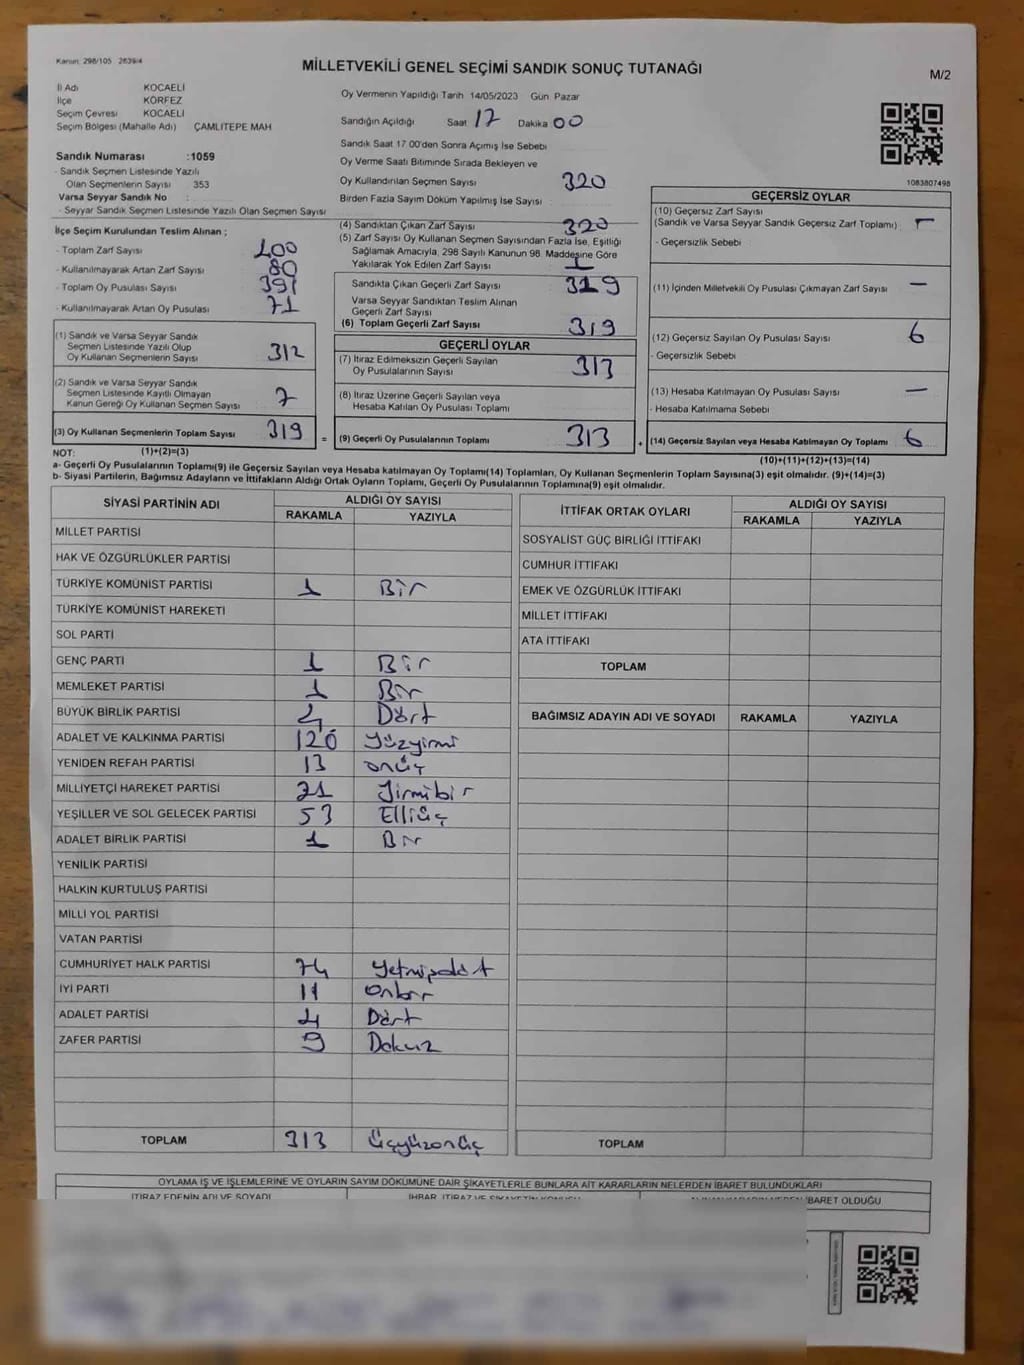 Kanun: 298/105 2839/4
MİLLETVEKİLİ GENEL SEÇİMİ SANDIK SONUÇ TUTANAĞI
M/2
İl Adı KOCAELİ
İlçe KÖRFEZ
Seçim Çevresi KOCAELİ
Seçim Bölgesi (Mahalle Adı) ÇAMLITEPE MAH
Sandık Numarası :1059
- Sandık Seçmen Listesinde Yazılı
Olan Seçmenlerin Sayısı 353
Varsa Seyyar Sandık No
- Seyyar Sandık Seçmen Listesinde Yazılı Olan Seçmen Sayısı
İlçe Seçim Kurulundan Teslim Alınan ;
- Toplam Zarf Sayısı 400
- Kullanılmayarak Artan Zarf Sayısı 80
- Toplam Oy Pusulası Sayısı 391
- Kullanılmayarak Artan Oy Pusulası 71
(1) Sandık ve Varsa Seyyar Sandık
Seçmen Listesinde Yazılı Olup
Oy Kullanan Seçmenlerin Sayısı 312
(2) Sandık ve Varsa Seyyar Sandık
Seçmen Listesinde Kayıtlı Olmayan
Kanun Gereği Oy Kullanan Seçmen Sayısı 7
(3) Oy Kullanan Seçmenlerin Toplam Sayısı 319 =
Oy Vermenin Yapıldığı Tarih 14/05/2023 Gün Pazar
Sandığın Açıldığı Saat 17 Dakika 00
Sandık Saat 17.00'den Sonra Açımış İse Sebebi
Oy Verme Saati Bitiminde Sırada Bekleyen ve
Oy Kullandırılan Seçmen Sayısı 320
Birden Fazla Sayım Döküm Yapılmış İse Sayısı
(4) Sandıktan Çıkan Zarf Sayısı 320
(5) Zarf Sayısı Oy Kullanan Seçmen Sayısından Fazla İse, Eşitliği
Sağlamak Amacıyla, 298 Sayılı Kanunun 98. Maddesine Göre
Yakılarak Yok Edilen Zarf Sayısı 1
Sandıkta Çıkan Geçerli Zarf Sayısı 319
Varsa Seyyar Sandıktan Teslim Alınan
Geçerli Zarf Sayısı
(6) Toplam Geçerli Zarf Sayısı 319
GEÇERLİ OYLAR
(7) İtiraz Edilmeksizin Geçerli Sayılan
Oy Pusulalarının Sayısı 313
(8) İtiraz Üzerine Geçerli Sayılan veya
Hesaba Katılan Oy Pusulası Toplamı
(9) Geçerli Oy Pusulalarının Toplamı 313 +
1083807498
GEÇERSİZ OYLAR
(10) Geçersiz Zarf Sayısı
(Sandık ve Varsa Seyyar Sandık Geçersiz Zarf Toplamı) -
- Geçersizlik Sebebi
(11) İçinden Milletvekili Oy Pusulası Çıkmayan Zarf Sayısı -
(12) Geçersiz Sayılan Oy Pusulası Sayısı 6
- Geçersizlik Sebebi
(13) Hesaba Katılmayan Oy Pusulası Sayısı -
- Hesaba Katılmama Sebebi
(14) Geçersiz Sayılan veya Hesaba Katılmayan Oy Toplamı 6
NOT: (1)+(2)=(3) (10)+(11)+(12)+(13)=(14)
a- Geçerli Oy Pusulalarının Toplamı(9) ile Geçersiz Sayılan veya Hesaba katılmayan Oy Toplamı(14) Toplamları, Oy Kullanan Seçmenlerin Toplam Sayısına(3) eşit olmalıdır. (9)+(14)=(3)
b- Siyasi Partilerin, Bağımsız Adayların ve İttifakların Aldığı Ortak Oyların Toplamı, Geçerli Oy Pusulalarının Toplamına(9) eşit olmalıdır.
SİYASİ PARTİNİN ADI ALDIĞI OY SAYISI
RAKAMLA YAZIYLA
MİLLET PARTİSİ
HAK VE ÖZGÜRLÜKLER PARTİSİ
TÜRKİYE KOMÜNİST PARTİSİ 1 Bir
TÜRKİYE KOMÜNİST HAREKETİ
SOL PARTİ
GENÇ PARTİ 1 Bir
MEMLEKET PARTİSİ 1 Bir
BÜYÜK BİRLİK PARTİSİ 4 Dört
ADALET VE KALKINMA PARTİSİ 120 Yüzyirmi
YENİDEN REFAH PARTİSİ 13 onüç
MİLLİYETÇİ HAREKET PARTİSİ 21 Yirmibir
YEŞİLLER VE SOL GELECEK PARTİSİ 53 Elliüç
ADALET BİRLİK PARTİSİ 1 Bir
YENİLİK PARTİSİ
HALKIN KURTULUŞ PARTİSİ
MİLLİ YOL PARTİSİ
VATAN PARTİSİ
CUMHURİYET HALK PARTİSİ 74 Yetmişdört
İYİ PARTİ 11 Onbir
ADALET PARTİSİ 4 Dört
ZAFER PARTİSİ 9 Dokuz
TOPLAM 313 üçyüzonüç
İTTİFAK ORTAK OYLARI ALDIĞI OY SAYISI
RAKAMLA YAZIYLA
SOSYALİST GÜÇ BİRLİĞİ İTTİFAKI
CUMHUR İTTİFAKI
EMEK VE ÖZGÜRLÜK İTTİFAKI
MİLLET İTTİFAKI
ATA İTTİFAKI
TOPLAM
BAĞIMSIZ ADAYIN ADI VE SOYADI RAKAMLA YAZIYLA
TOPLAM
OYLAMA İŞ VE İŞLEMLERİNE VE OYLARIN SAYIM DÖKÜMÜNE DAİR ŞİKAYETLERLE BUNLARA AİT KARARLARIN NELERDEN İBARET BULUNDUKLARI
İTİRAZ EDENİN ADI VE SOYADI İHBAR, İTİRAZ VE ŞİKAYETİN KONUSU İBARET OLDUĞU